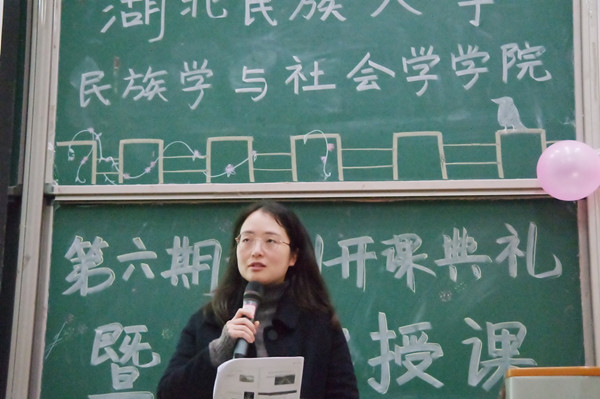 湖北民族大学
民族学与社会学学院
第六期 开课典礼
暨 授课